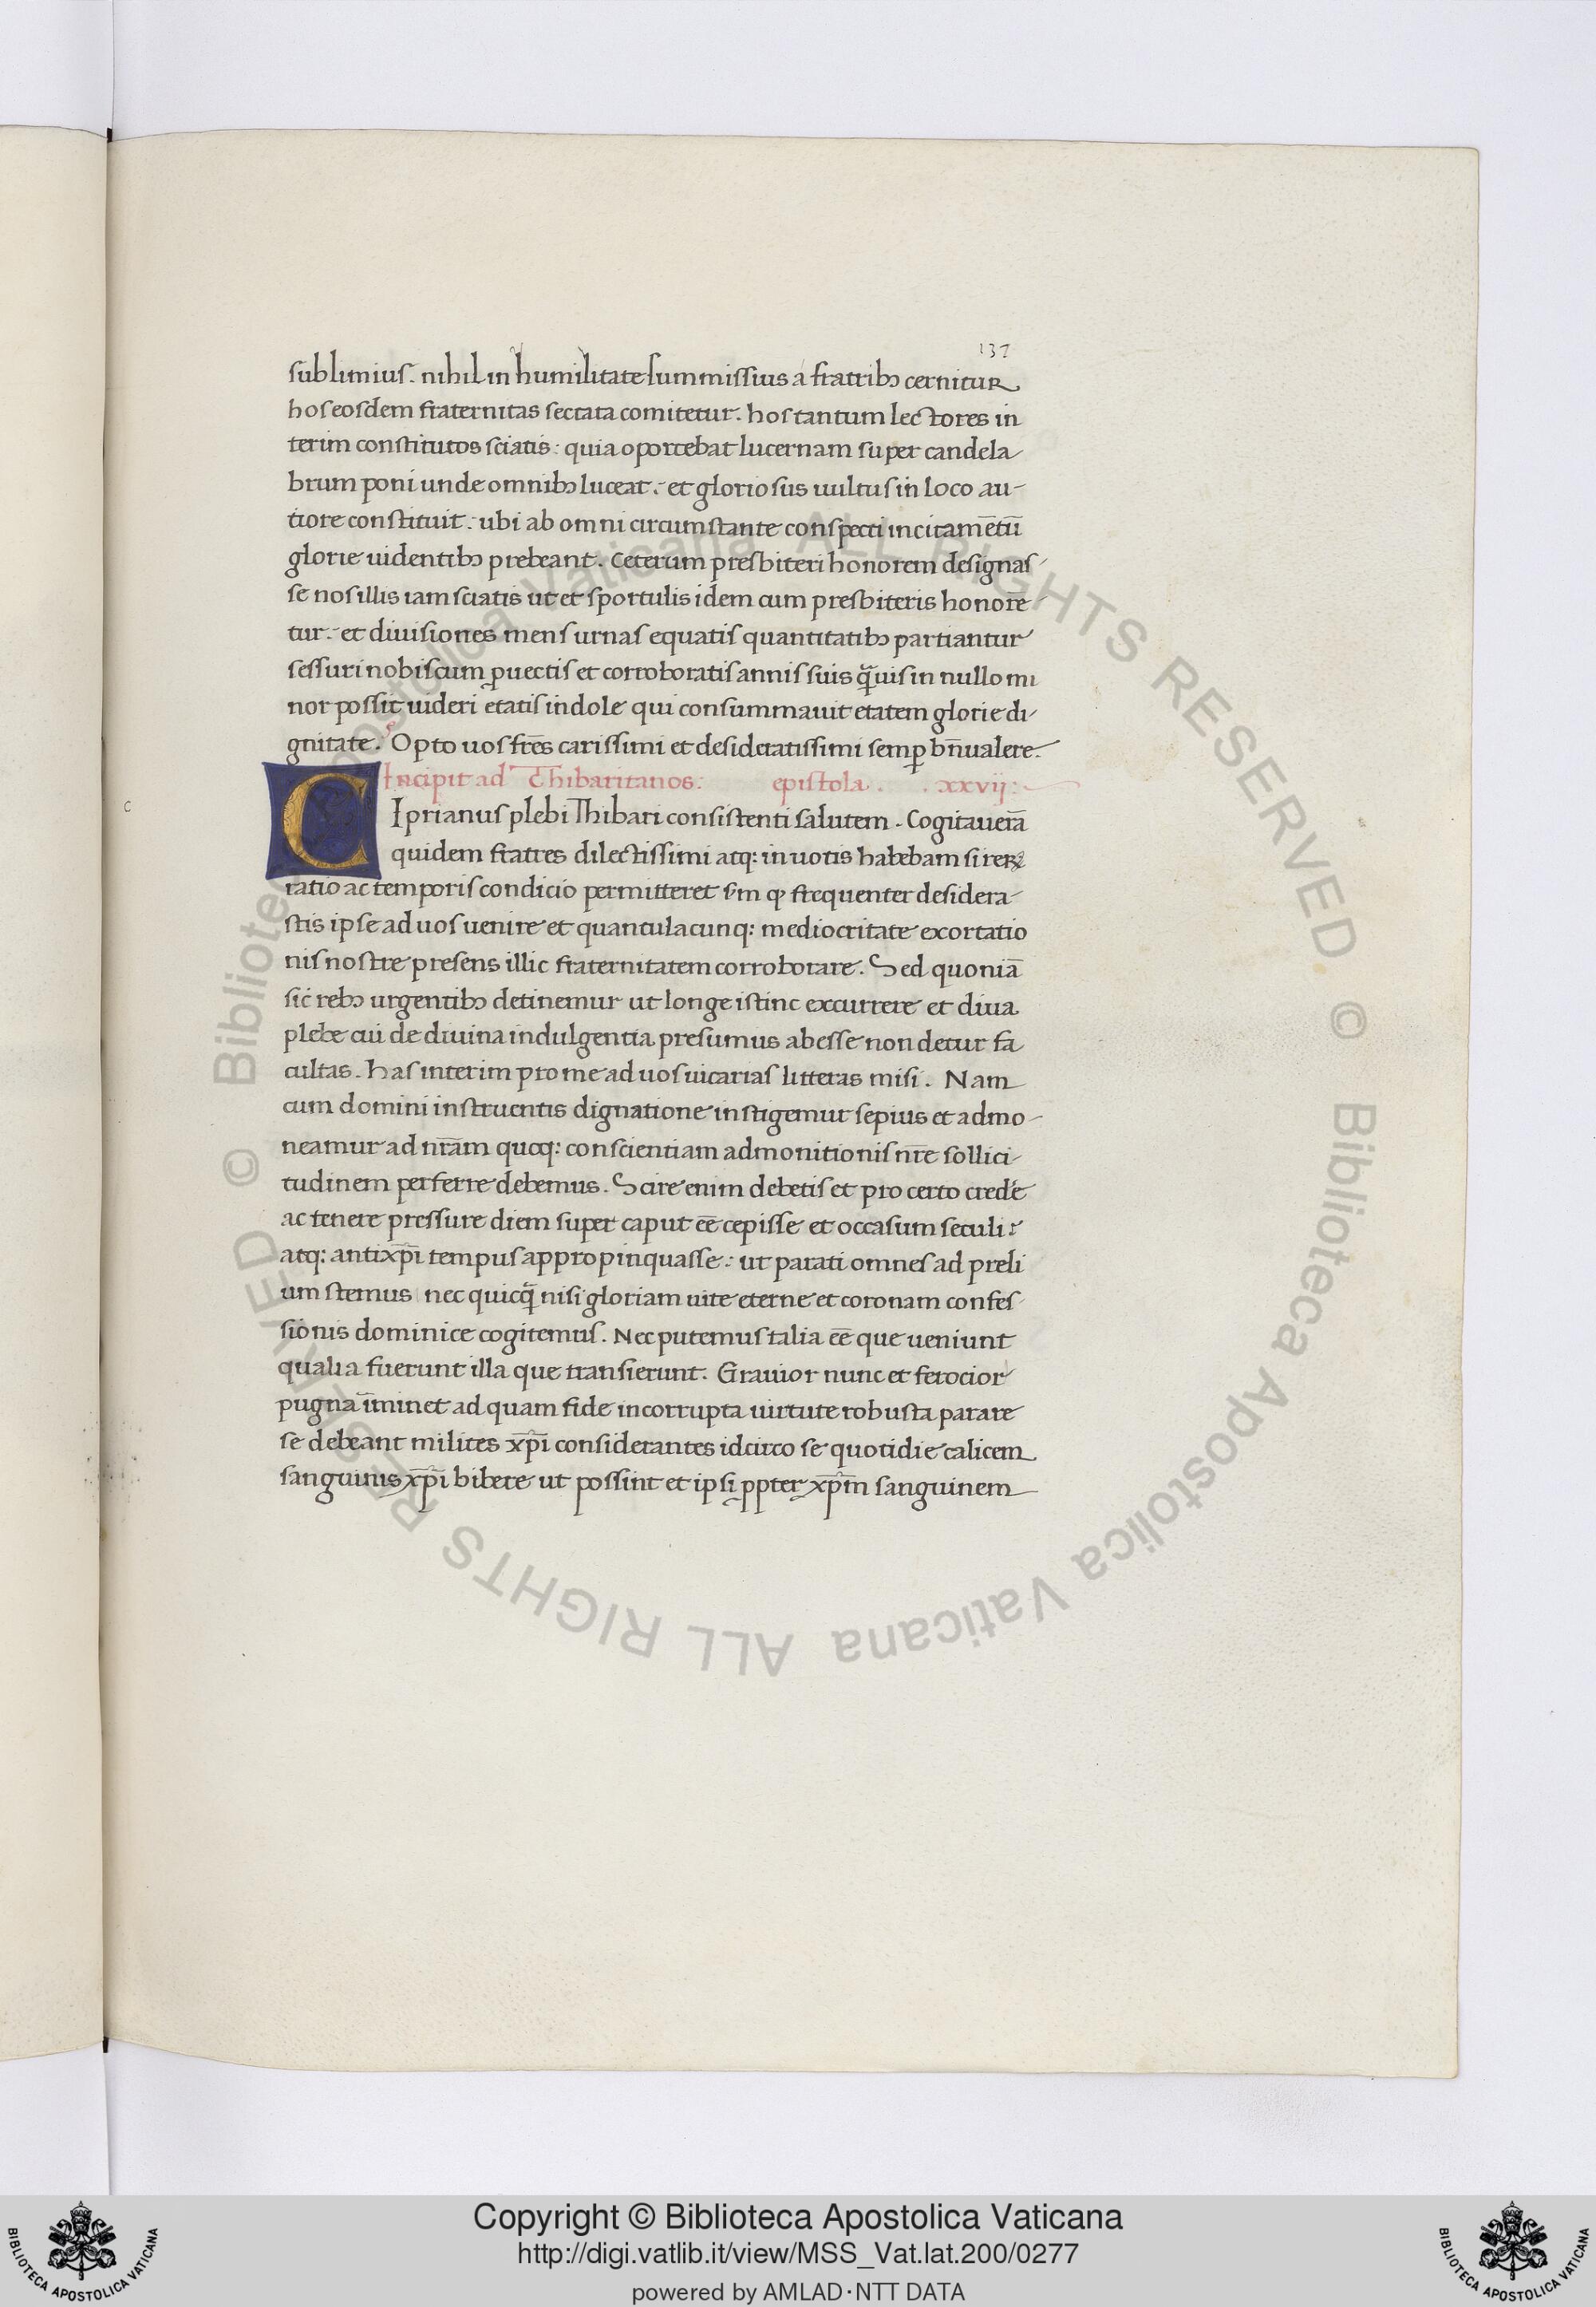 137
sublimius. nihil in humilitate summissius a fratribꝫ cernitur
hos eosdem fraternitas sectata comitetur. hos tantum lectores in
terim constitutos sciatis: quia oportebat lucernam super candela
brum poni unde omnibꝫ luceat: et gloriosus uultus in loco au-
tiore constituit: ubi ab omni circumstante conspecti incitamētū
glorie uidentibꝫ prebeant. Ceterum presbiteri honorem designas-
se nos illis iam sciatis ut et sportulis idem cum presbiteris honore-
tur: et diuisiones mensurnas equatis quantitatibꝫ partiantur
sessuri nobiscum ꝓuectis et corroboratis annis suis q̄uis in nullo mi
nor possit uideri etatis indole qui consummauit etatem glorie di-
gnitate. Opto uos fr̄es carissimi et desideratissimi semꝑ bn̄ualere.
Incipit ad Thibaritanos: epistola . . xxvij:
C
Iprianus plebi Thibari consistenti salutem. Cogitauerā
quidem fratres dilectissimi atq: in uotis habebam si rerꝝ
ratio ac temporis condicio permitteret s̄m ꝙ frequenter desidera-
stis ipse ad uos uenire et quantulacunq: mediocritate exortatio
nis nostre presens illic fraternitatem corroborare. Sed quoniā
sic rebꝫ urgentibꝫ detinemur ut longe istinc excurrere et diu a
plebe cui de diuina indulgentia presumus abesse non detur fa
cultas. has interim pro me ad uos uicarias litteras misi. Nam
cum domini instruentis dignatione instigemur sepius et admo-
neamur ad nr̄am quoq: conscientiam admonitionis nr̄e sollici-
tudinem perferre debemus. Scire enim debetis et pro certo credē
ac tenere pressure diem super caput ēe cepisse et occasum seculi:
atq: antixp̄i tempus appropinquasse: ut parati omnes ad preli
um stemus nec quicq̄ nisi gloriam uite eterne et coronam confes-
sionis dominice cogitemus. Nec putemus talia ēe que ueniunt
qualia fuerunt illa que transierunt. Grauior nunc et ferocior
pugna īminet ad quam fide incorrupta uirtute robusta parare
se debeant milites xp̄i considerantes idcirco se quotidie calicem
sanguinis xp̄i bibere ut possint et ipsi ꝓpter xp̄m sanguinem
c
© Biblioteca Apostolica Vaticana ALL RIGHTS RESERVED © Biblioteca Apostolica Vaticana ALL RIGHTS RESERVED
Copyright © Biblioteca Apostolica Vaticana
http://digi.vatlib.it/view/MSS_Vat.lat.200/0277
powered by AMLAD·NTT DATA
BIBLIOTECA APOSTOLICA VATICANA
BIBLIOTECA APOSTOLICA VATICANA